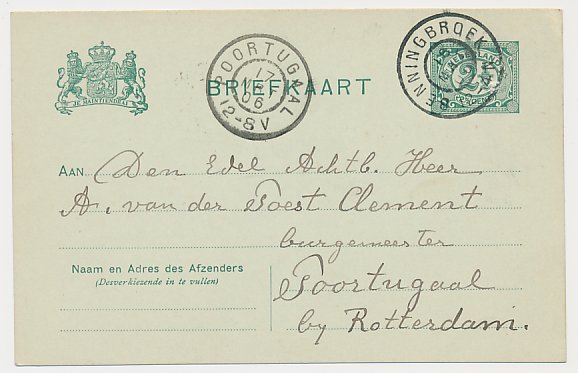 POORTUGAAL
17
06
12-8V
JE MAINTIENDRAI
BRIEFKAART
AAN Den Edel Achtb. Heer
A. van der Poest Clement
burgemeester
Naam en Adres des Afzenders
(Desverkiezende in te vullen)
Poortugaal
by Rotterdam.